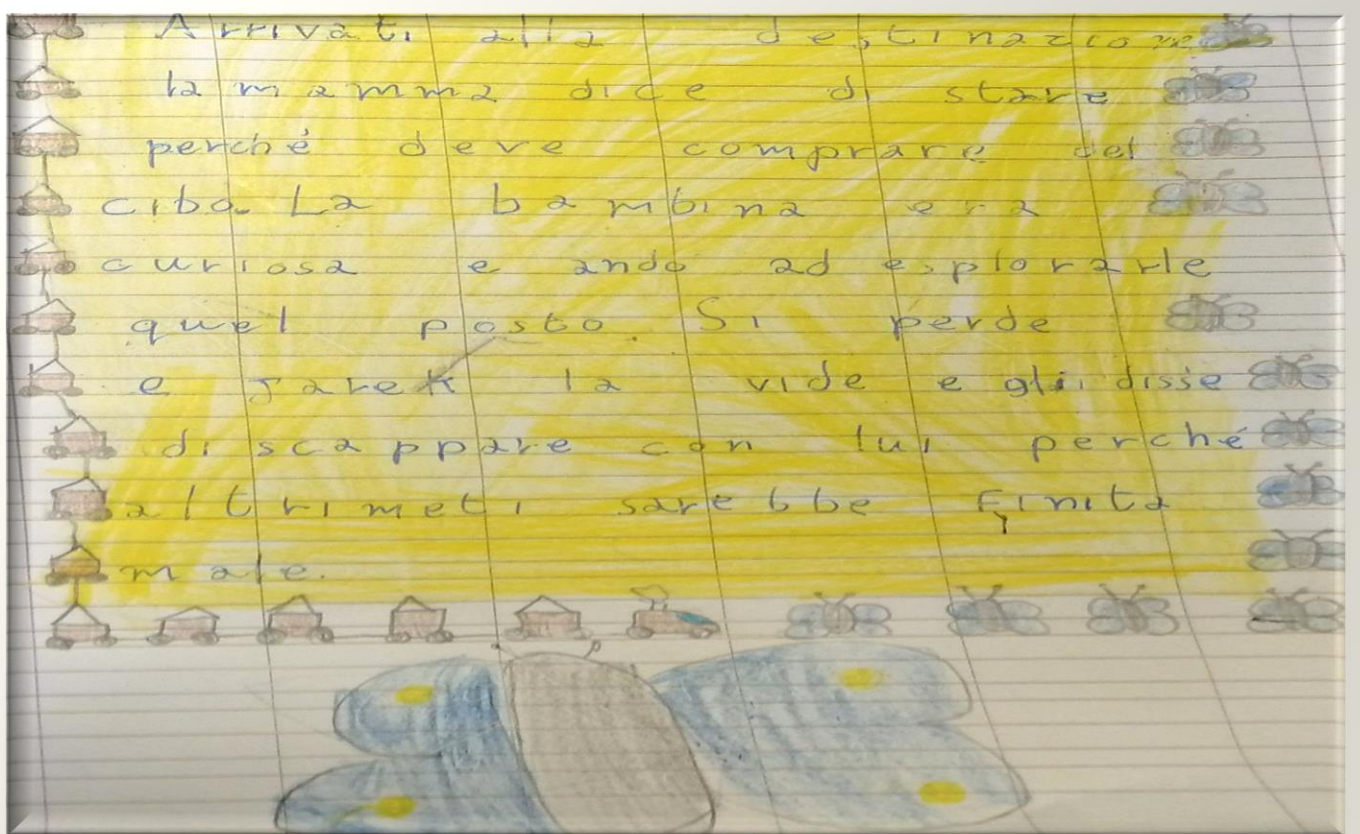 Arrivati alla destinazione
la mamma dice di stare
perché deve comprare del
cibo. La bambina era
curiosa e andò ad esplorarle
quel posto. Si perde
e Jarek la vide e gli disse
di scappare con lui perché
altrimeti sarebbe finita
male.